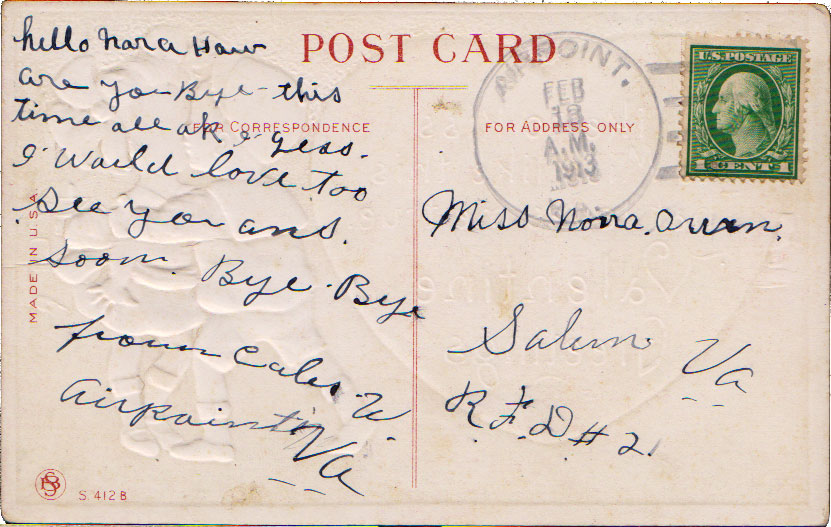 POST CARD
hello nara Haw
are you Bye - this
time all ok i gess.
FOR CORRESPONDENCE
i Would love too
See you ans.
Soon. Bye - Bye
from W.
Airpoint Va
MADE IN U.S.A.
S. 412 B
AIRPOINT.
FEB
A.M.
1913
VA.
U.S. POSTAGE
1 CENT 1
FOR ADDRESS ONLY
Miss Norra.
Salem Va
R.F.D # 2.